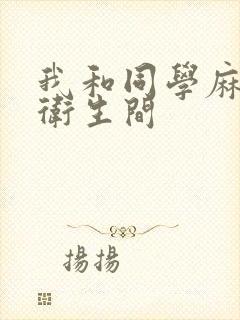 我和同學麻
衛生間
揚揚